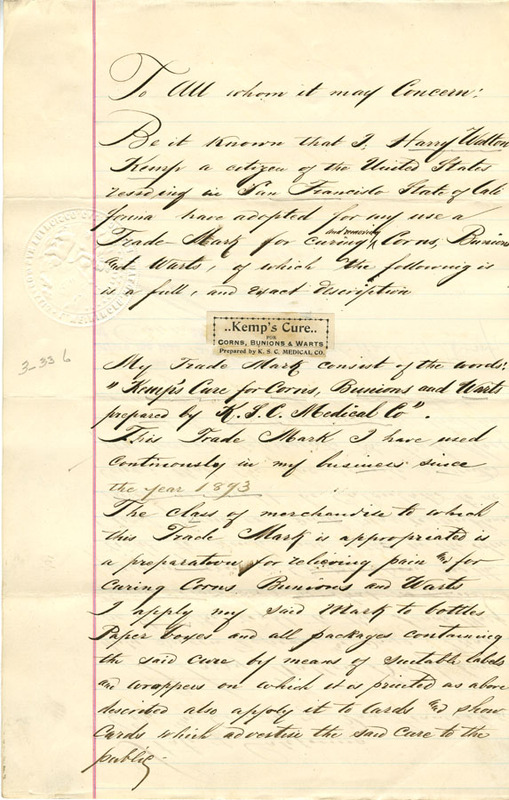 To All whom it may Concern:
Be it Known that I, Harry Walton
Kemp a citizen of the United States
residing in San Francisco State of Cali
fornia have adopted for my use a
and removing
Trade-Mark for curing Corns, Bunions
and Warts, of which the following is
is a full, and exact description
..Kemp's Cure..
FOR
CORNS, BUNIONS & WARTS
Prepared by K. S. C. MEDICAL CO.
3-336
My Trade Mark consist of the words:
"Kemp's Cure for Corns, Bunions and Warts
prepared by K. S. C. Medical Co".
This Trade Mark I have used
continously in my business since
the year 1893
The Class of merchandise to which
this Trade Mark is appropriated is
a preparation for relieving pain and for
curing Corns Bunions and Warts
I apply my said Mark to bottles
Paper boxes and all packages containing
the said cure by means of suitable labels
and wrappers on which it is printed as above
described also apply it to Cards and show
Cards which advertise the said cure to the
public.